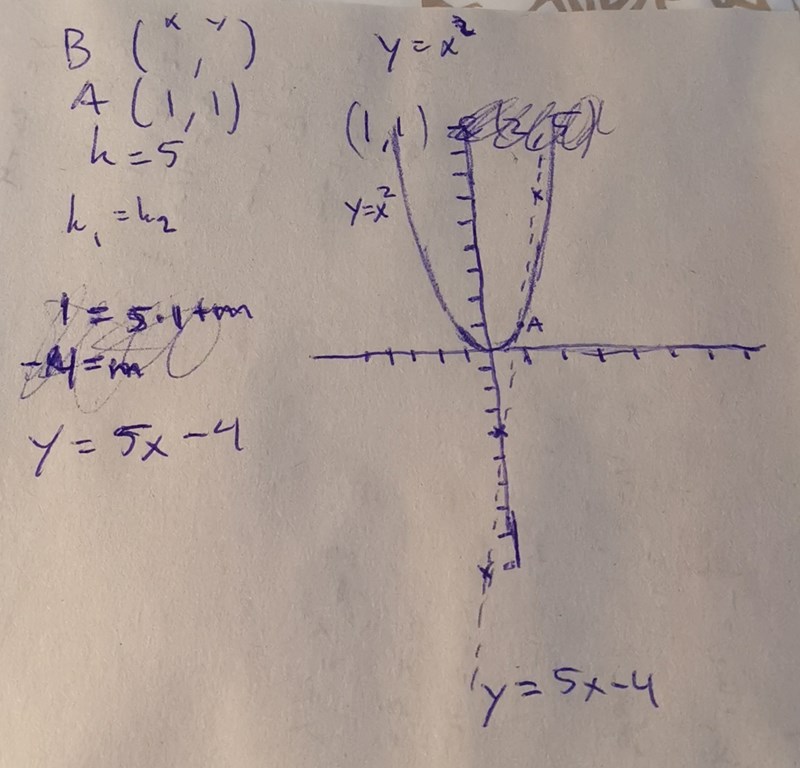 B (x, y)
A (1, 1)
k = 5
k₁ = k₂
1 = 5·1+m
-4 = m
y = 5x - 4
y = x²
(1, 1)
y = x²
A
y = 5x - 4